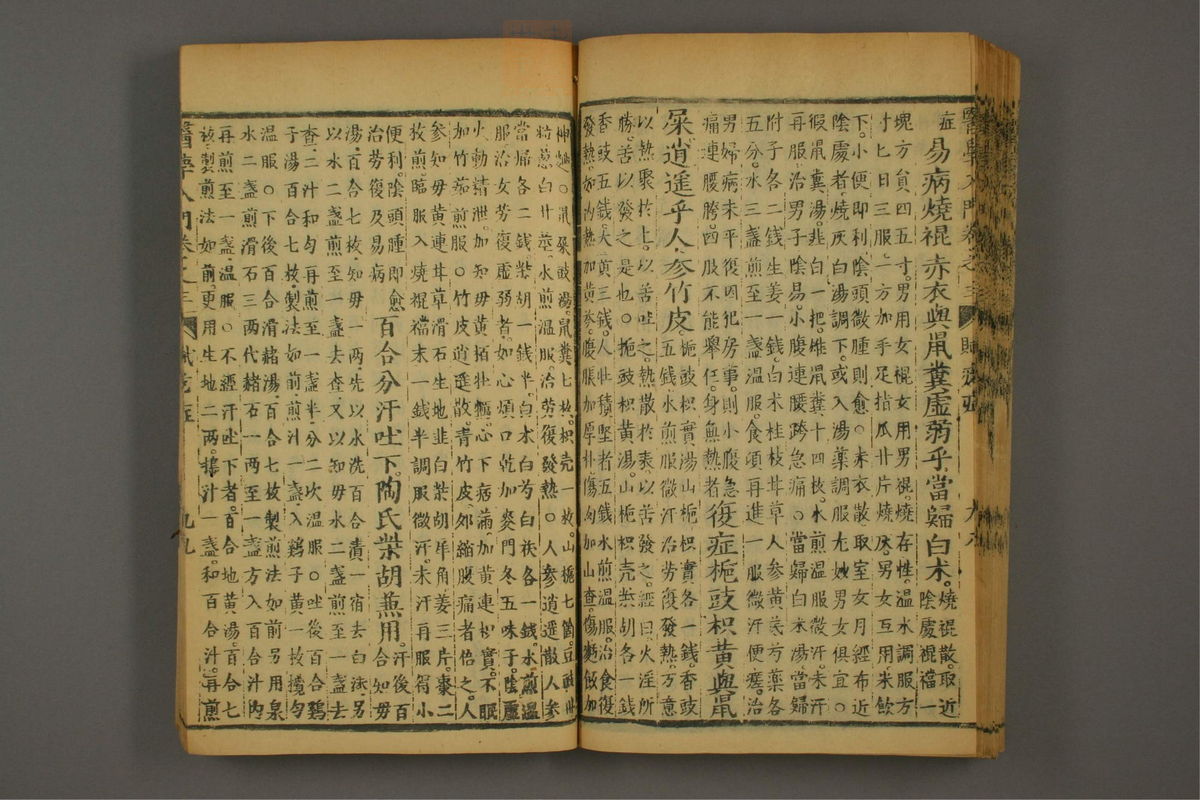 醫學入門卷之三 賦 症 九八
症易病燒裩赤衣與鼠糞虛弱乎當歸白朮。燒裩散。取近
陰處裩襠一
塊方員四五寸。男用女裩。女用男裩。燒存性。溫水調服方
寸匕日三服。一方加手足指瓜廿片燒灰。男女互用米飲
下。小便即利陰頭微腫則愈。○赤衣散取室女月經布近
陰處者。燒灰白湯調下。或入湯藥調服尤妙男女俱宜。○
猳鼠糞湯。韭白一把。雄鼠糞十四枚。水煎溫服微汗。未汗
再服治男子陰易。小腹連腰跨急痛。○當歸白朮湯。當歸
附子各二錢生姜一錢。白朮桂枝甘草人參黃芪芍藥各
五分。水三盞煎至一盞溫服。食頃再進一服微汗便瘥。治
男婦病未平復因犯房事。則小腹急
痛連腰胯。四肢不能舉任。身無熱者
復症梔豉枳黃與鼠
屎逍遙乎人參竹皮。梔豉枳實湯山梔。枳實各一錢。香豉
五錢水煎服微汗治勞復發熱。方意
以熱聚於上以苦吐之。熱散於表以苦發之。經曰。火淫所
勝。苦以發之是也。○梔豉枳黃湯。山梔枳壳柴胡各一錢
香豉五錢。大黃三錢。人壯積堅者五錢。水煎溫服。治食復
發熱如內熱。加黃芩。腹脹加厚朴。傷肉加山查。傷麫飯加
神麯。○鼠屎豉湯。鼠糞七枚。枳壳一枚。山梔七箇。豆豉卅
粒葱白廿莖。水煎溫服。治勞復發熱。○人參逍遙散人參
當歸各二錢。柴胡一錢半。白朮白芍白茯各一錢。水煎溫
服。治女勞復虛弱者。如心煩口乾加麥門冬五味子。陰虛
火動精泄。加知母黃栢牡蠣。心下痞滿。加黃連枳實。不眠
加竹茹煎服。○竹皮逍遙散。青竹皮。卵縮腹痛者倍之。人
參知母黃連甘草滑石生地韭白柴胡犀角姜三片。棗二
枚煎。臨服入燒裩襠末一錢半調服微汗。未汗再服。得小
便利。陰頭腫即愈
治勞復及易病
百合分汗吐下。陶氏柴胡兼用。汗後百
合知母
湯。百合七枚。知母一兩。先以水洗百合漬一宿去白沫另
以水二盞煎至一盞去查。又以知母水二盞煎至一盞去
查。二汁和勻再煎至一盞半。分二次溫服。○吐後百合鷄
子湯百合七枚。製法如前。煎汁一盞。入鷄子黃一枚攪勻
溫服。○下後百合滑赭湯。百合七枚製煎法如前另用泉
水二盞煎滑石三兩代赭石一兩至一盞。方入百合汁內
再煎至一盞。溫服。○不經汗吐下者。百合地黃湯。百合七
枚。製煎法如前。更用生地二兩。搗汁一盞。和百合汁。再煎
醫學入門卷之三 賦 症 九九